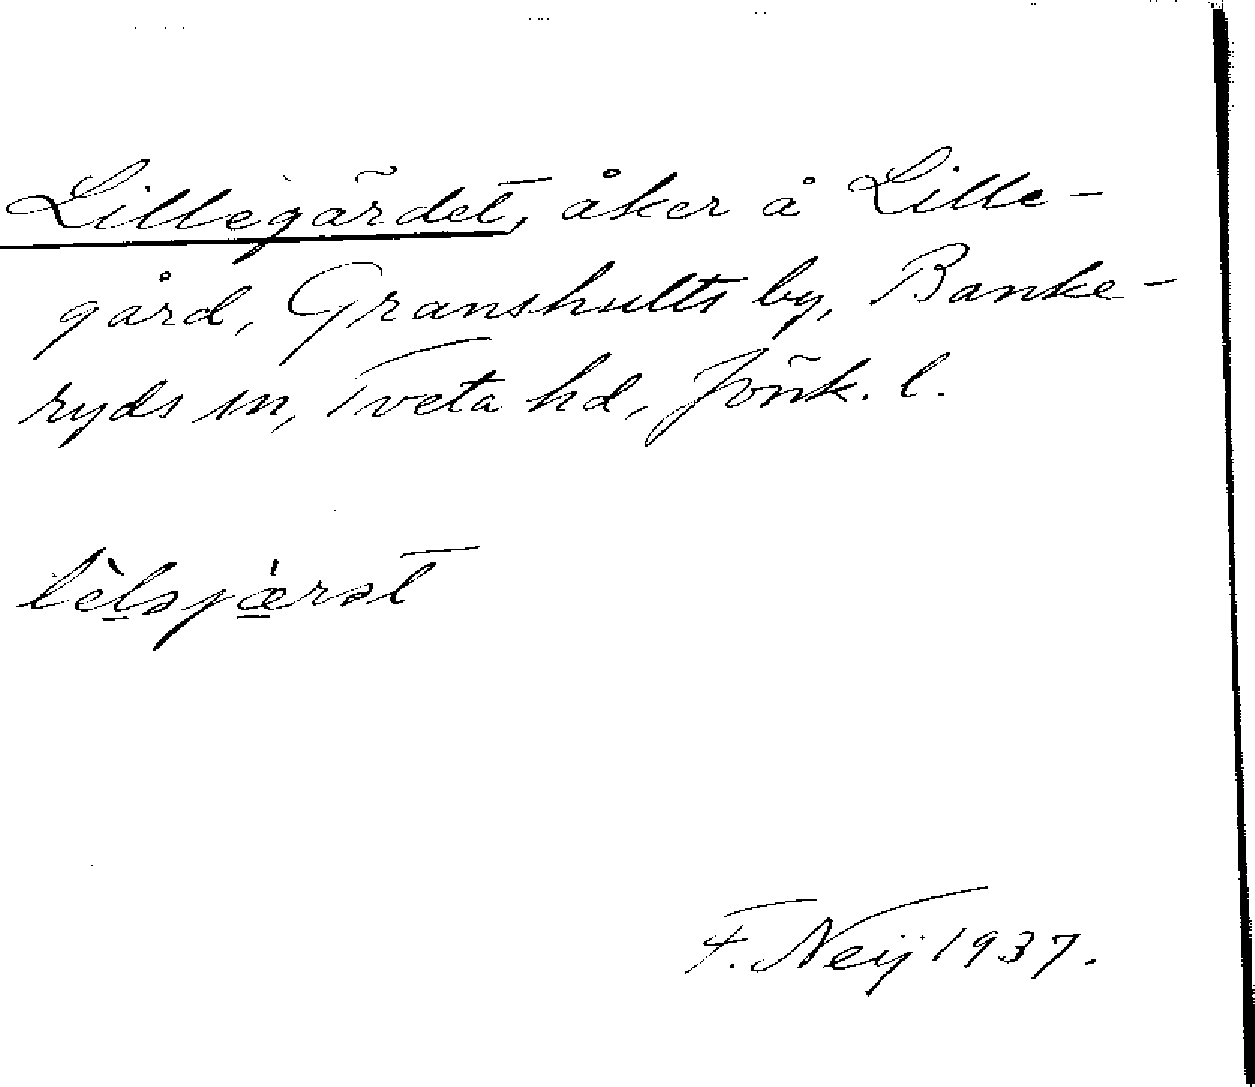 Lillegärdet, åker å Lille-
gård, Granshults by, Banke-
ryds sn, Tveta hd, Jönk. l.
lèləjæ̀rət
F. Neij 1937.